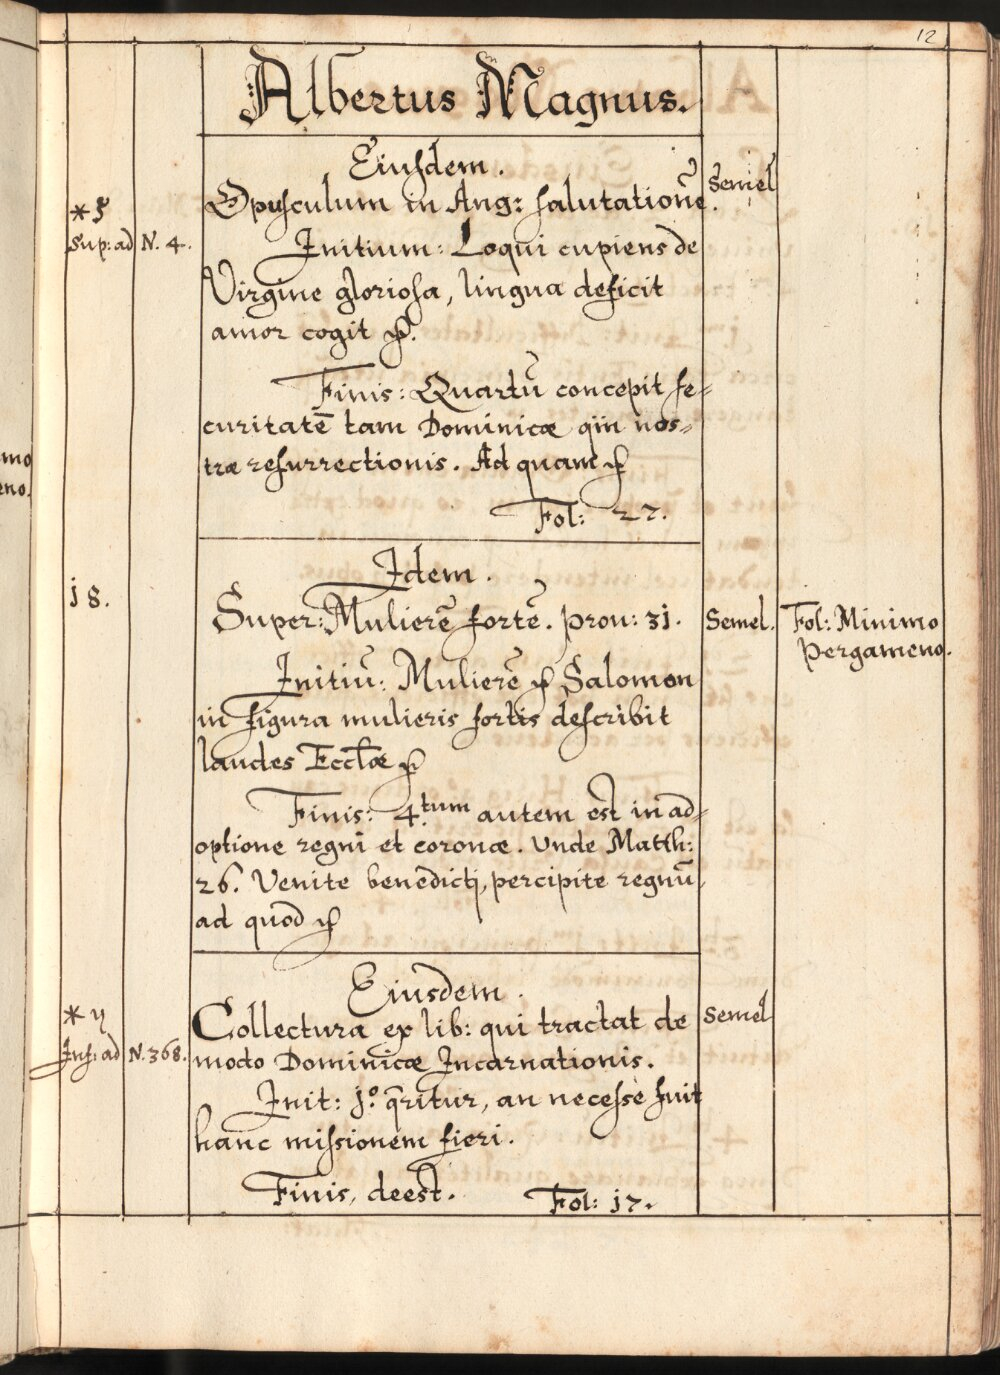 12
Albertus Magnus.
Eiusdem.
Opusculum in Ang: salutationē. Semel
*
Sup: ad N. 4.
Initium: Loqui cupiens de
Virgine gloriosa, lingua deficit
amor cogit
Finis: Quartū concepit se=
curitatē tam Dominicæ qm̄ nos=
træ resurrectionis. Ad quam
Fol: 27.
Idem.
j8.
Super: Mulierē fortē. prou: 3j. Semel. Fol: Minimo
pergameno.
Initiū: Mulierē Salomon
in figura mulieris fortis describit
laudes Ecclæ
Finis: 4.tum autem est in ad=
optione regni et coronæ. Unde Matth:
26. Venite benedicti, percipite regnū,
ad quod
Eiusdem.
*
Collectura ex lib: qui tractat de Semel
Inf: ad N. 368. modo Dominicæ Incarnationis.
Init: j.º q̄ritur, an necesse fuit
hanc missionem fieri.
Finis, deest. Fol: j7.
mo
eno.